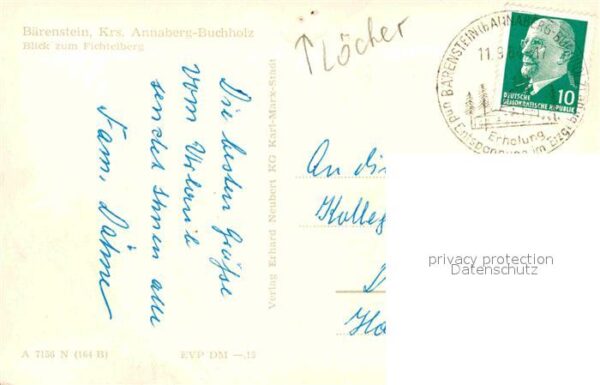 Bärenstein, Krs. Annaberg-Buchholz
Blick zum Fichtelberg
↑ Löcher
Die besten Grüße
vom Urlaub
sendet Ihnen alle
Fam. Dähne
Verlag Erhard Neubert KG Karl-Marx-Stadt
A 7156 N (164 B)
EVP DM —.15
BÄRENSTEIN
11.9.
Erholung
und Entspannung im Erzgeb.
DEUTSCHE
DEMOKRATISCHE REPUBLIK
10
An die
Kolleg
D
Ha
privacy protection
Datenschutz